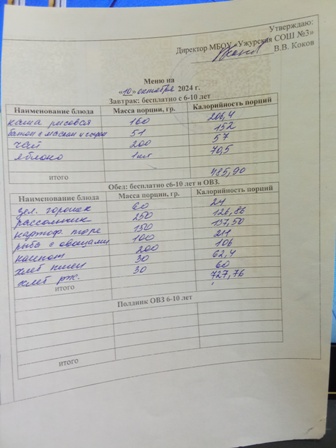 Утверждаю:
Директор МБОУ «Ужурская СОШ №3»
В.В. Коков
Меню на
«10» октября 2024 г.
Завтрак: бесплатно с 6-10 лет
Наименование блюда Масса порции, гр. Калорийность порций
каша рисовая 160 206,4
батон с маслом и сыром 51 152
чай 200 57
яблоко 1 шт 70,5
итого 485,90
Обед: бесплатно (с 6-10 лет и ОВЗ.
Наименование блюда Масса порции, гр. Калорийность порций
зел. горошек 60 24
рассольник 250 126,86
картоф. пюре 150 137,50
рыба с овощами 100 211
компот 200 106
хлеб пшен 30 62,4
хлеб рж. 30 60
итого 727,76
Полдник ОВЗ 6-10 лет
итого